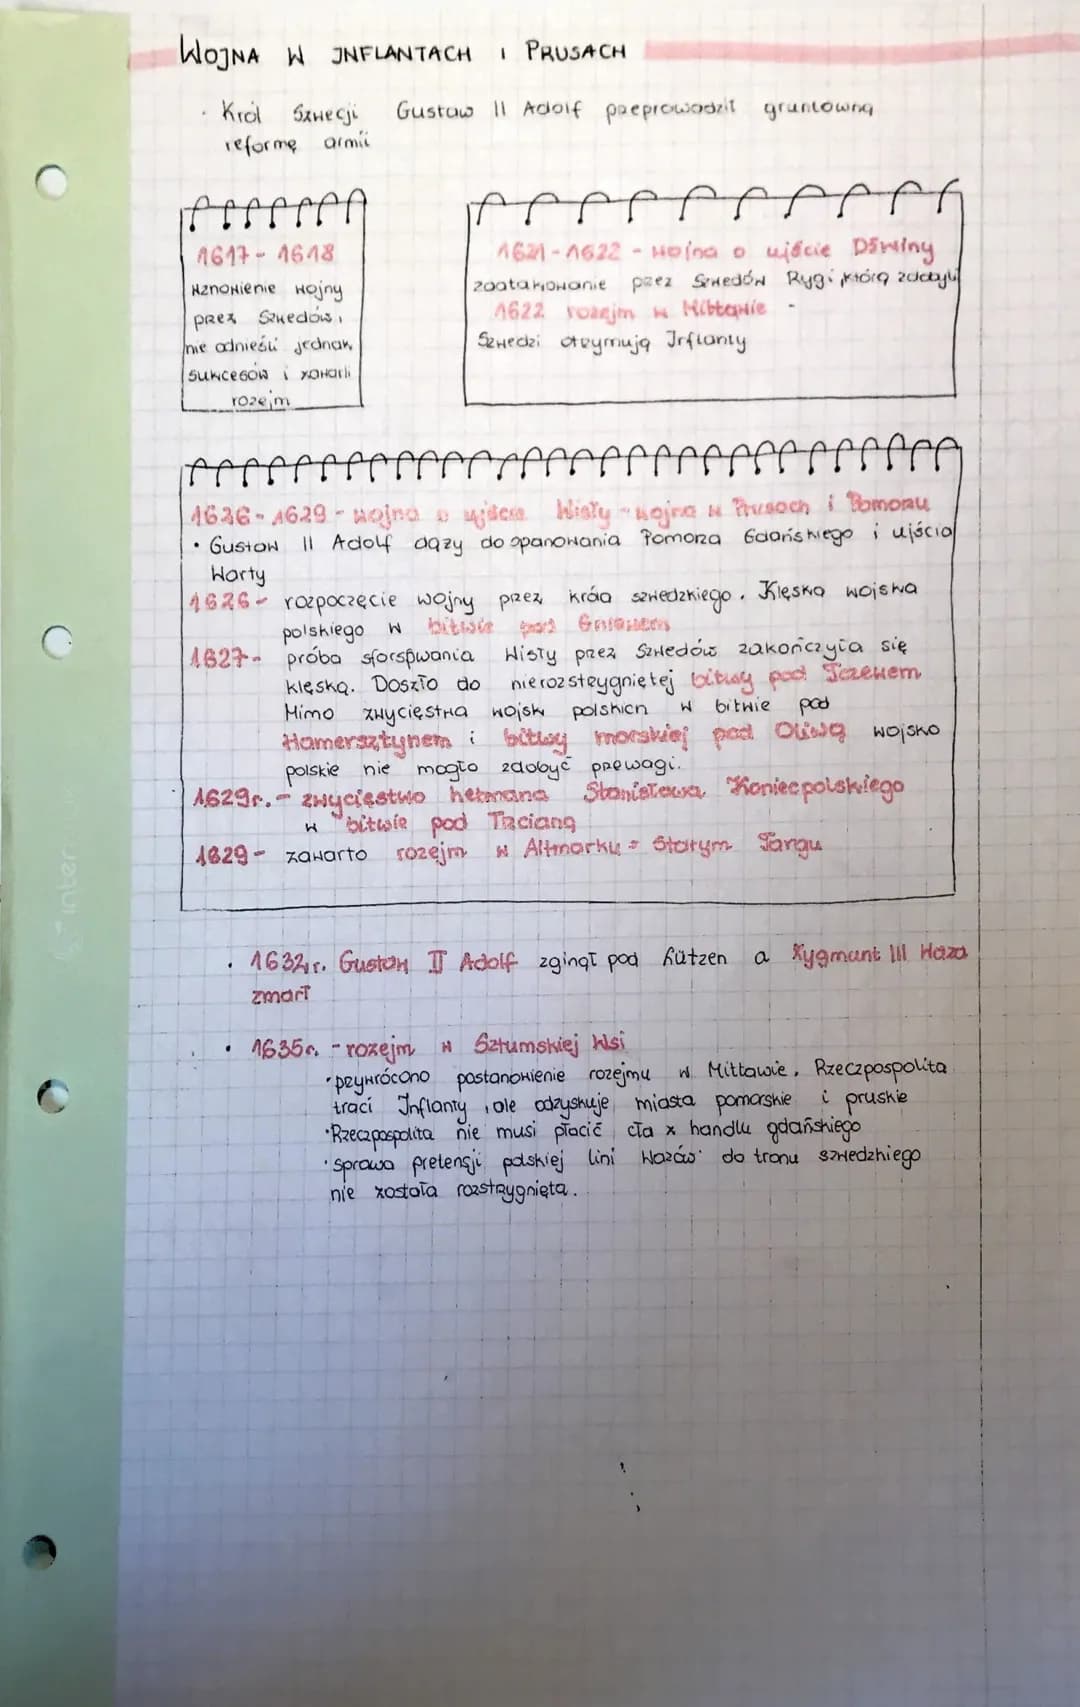 WOJNA W INFLANTACH I PRUSACH
· Król Szwecji Gustaw II Adolf przeprowadził gruntowną
reformę armii
1617 - 1618
wznowienie wojny
przez Szwedów,
nie odnieśli jednak
sukcesów i zawarli
rozejm
1621 - 1622 - wojna o ujście Dźwiny
zaatakowanie przez Szwedów Rygi, którą zdobyli
1622 rozejm w Mittawie -
Szwedzi otrzymują Inflanty
1626 - 1629 - wojna o ujście Wisły - wojna w Prusach i Pomorzu
· Gustaw II Adolf dąży do opanowania Pomorza Gdańskiego i ujścia
Warty
1626 - rozpoczęcie wojny przez króla szwedzkiego. Klęska wojska
polskiego w bitwie pod Gniewem
1627 - próba sforsowania Wisły przez Szwedów zakończyła się
klęską. Doszło do nierozstrzygniętej bitwy pod Tczewem
Mimo zwycięstwa wojsk polskich w bitwie pod
Hamersztynem i bitwy morskiej pod Oliwą wojsko
polskie nie mogło zdobyć przewagi.
1629r. - zwycięstwo hetmana Stanisława Koniecpolskiego
w bitwie pod Trzcianą
1629 - zawarto rozejm w Altmarku = Starym Targu
· 1632r. Gustaw II Adolf zginął pod Lützen a Zygmunt III Waza
zmarł
· 1635r. - rozejm w Sztumskiej Wsi
· przywrócono postanowienie rozejmu w Mittawie. Rzeczpospolita
traci Inflanty, ale odzyskuje miasta pomorskie i pruskie
· Rzeczpospolita nie musi płacić cła z handlu gdańskiego
· sprawa pretensji polskiej lini Wazów do tronu szwedzkiego
nie została rozstrzygnięta.
inter